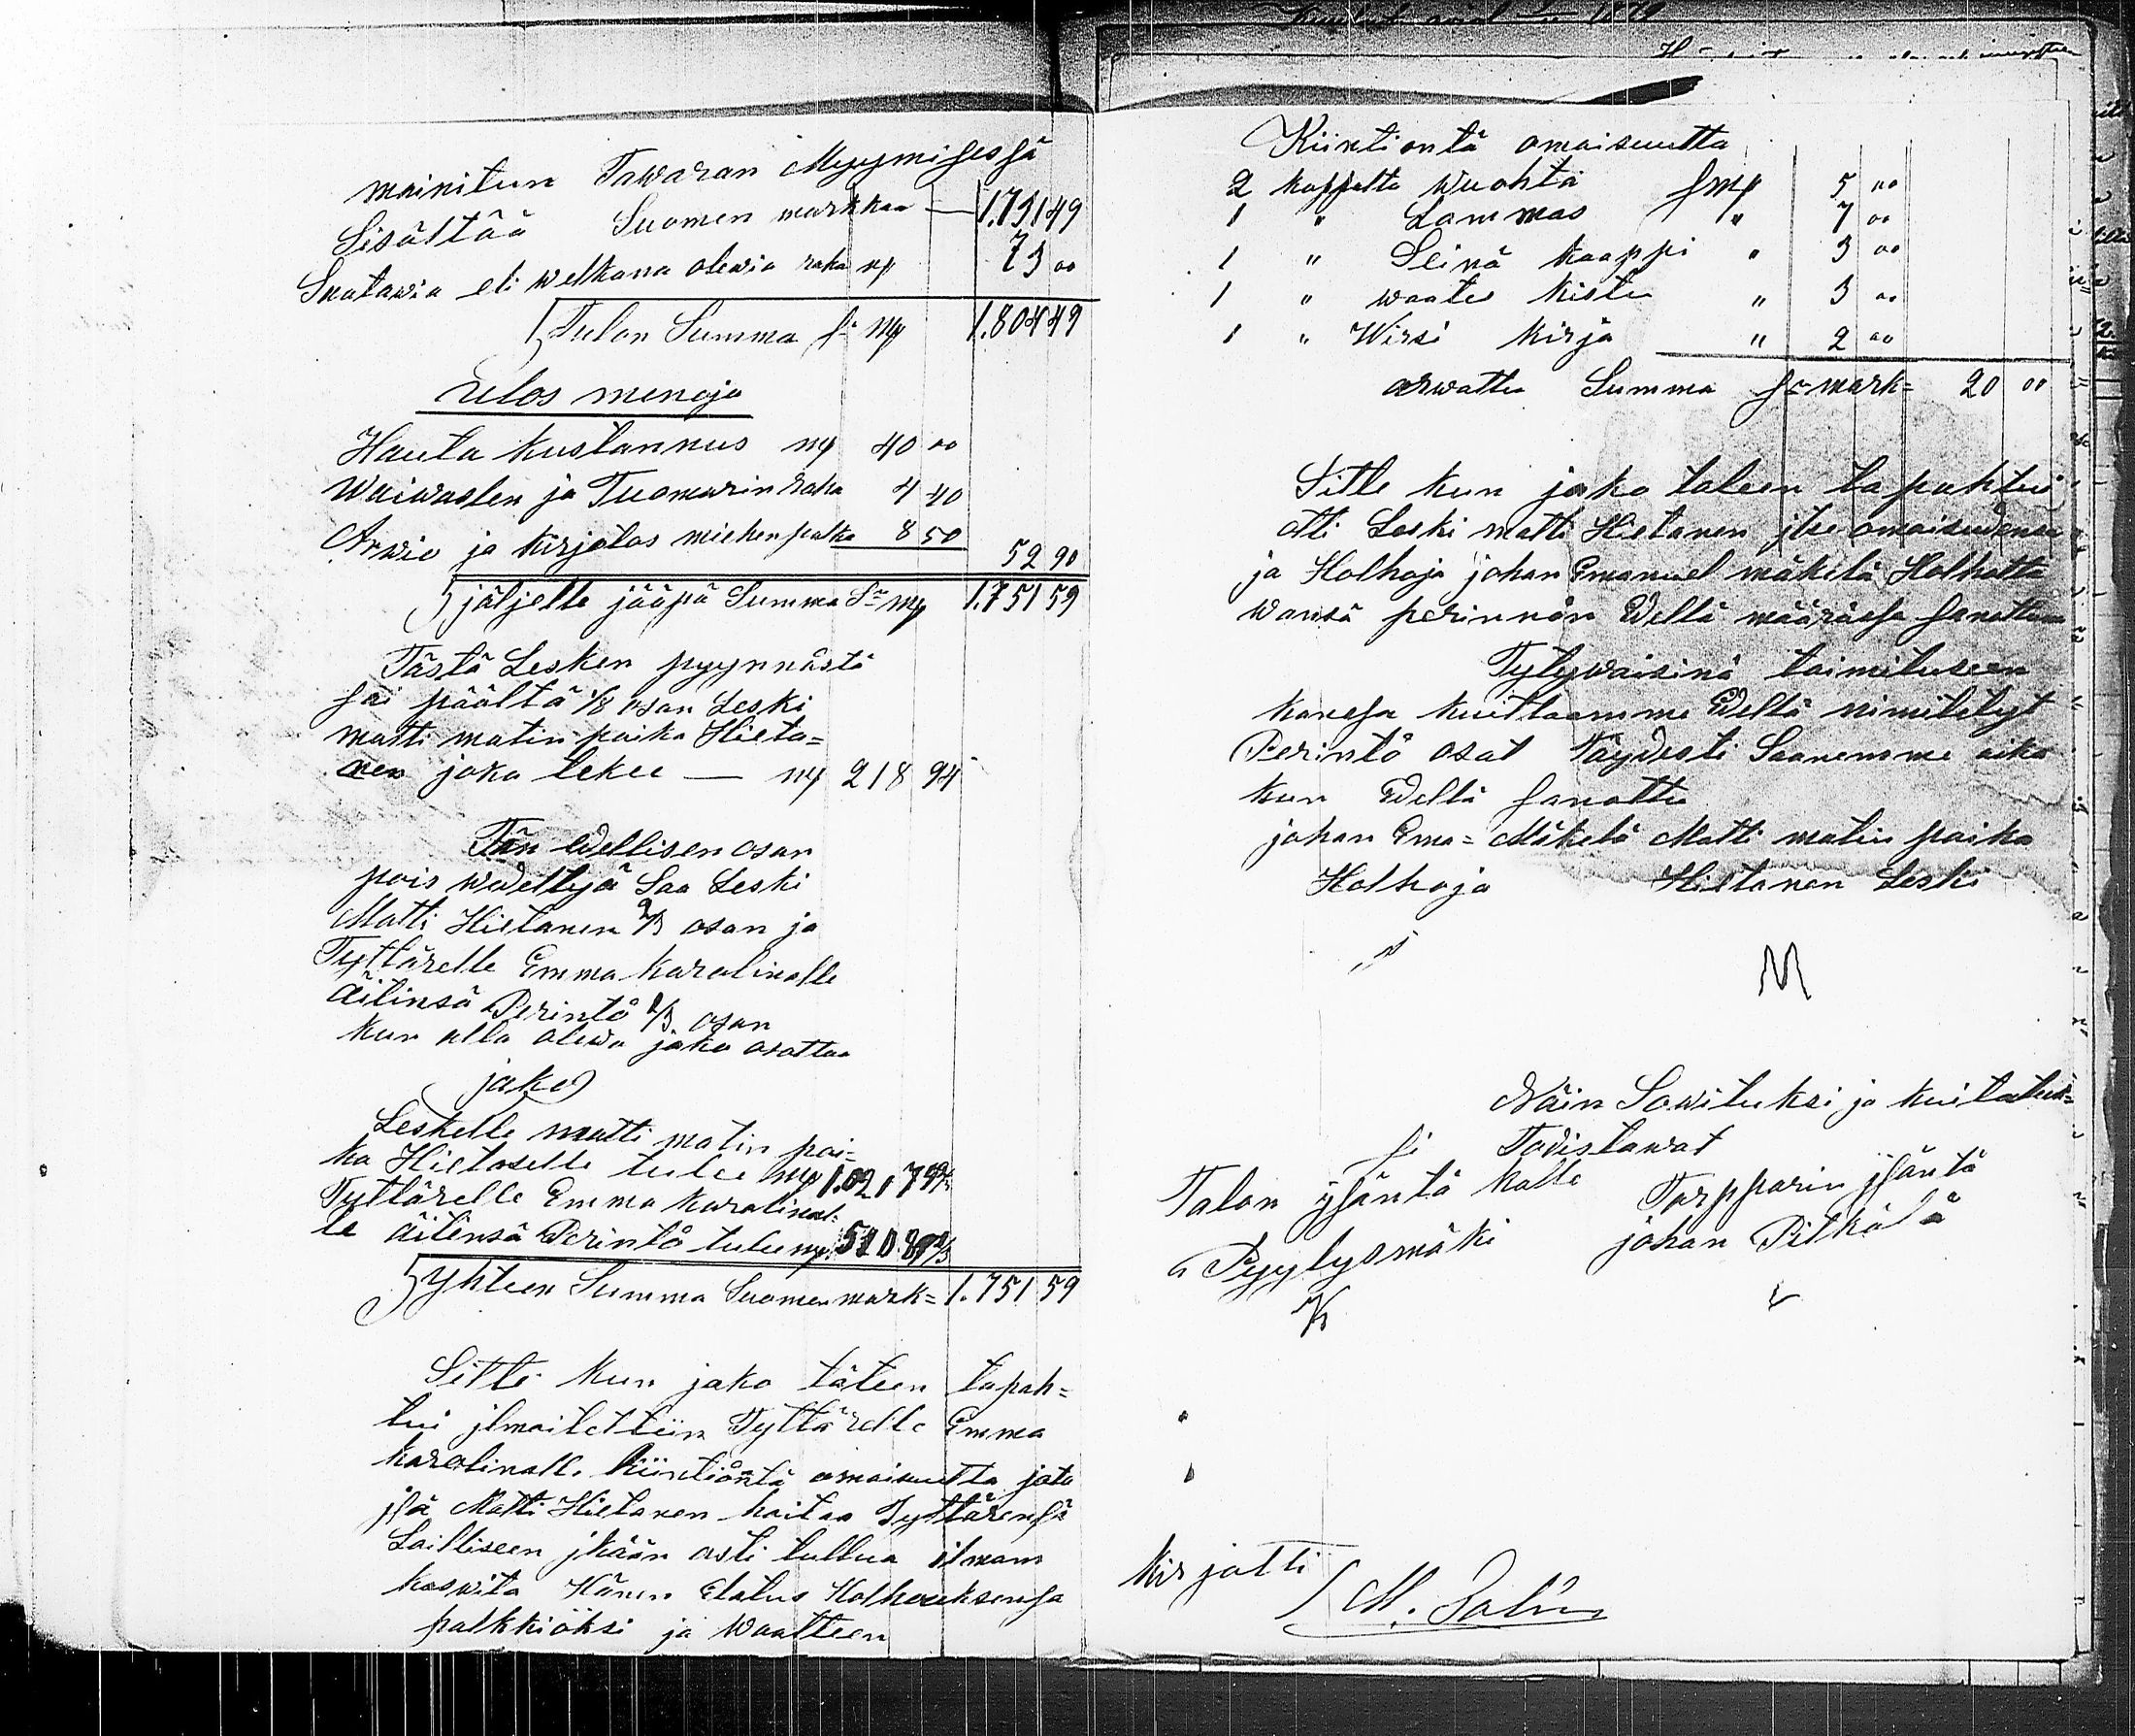 mainitun Tawaran Myymisessä
Sisältää Suomen markkaa — 1.731 49
Saatawia eli welkana olewia raha mp 73 00
Tulon Summa S: mp 1.804 49
Ulos menoja
Hauta kustannus mp 40 00
Waiwasten ja Tuomarin raha 4 40
Arwio ja kirjotos miehen palka 8 50
52 90
jäljelle jääpä Summa S= mp 1.751 59
Tästä Lesken pyynnöstä
sai päältä 1/8 osan Leski
matti matin poika Hieta=
nen joka tekee — mp 218 94
Tän edellisen osan
pois wedettyä Saa Leski
Matti Hietanen 2/3 osan ja
Tyttärelle Emma karolinalle
äitinsä Perintö 1/3 osan
kun alla olewa jako osottaa
jako
Leskelle matti matin poi=
ka Hietaselle tulee mp 1.021
Tyttärelle Emma karolinal=
le äitinsä Perintö tulee mp 510
Yhteen Summa Suomen mark= 1.751 59
Sitte kun jako täten tapah=
tui jlmoitettiin Tyttärelle Emma
karolinalle kiintiöntä omaisuutta jota
jsä Matti Hietanen hoitaa Tyttärensä
Lailliseen jkään asti tullua ilman
koswita Hänen Elatus Holhouksensa
palkkioksi ja Waatteen
Kiintiontä omaisuutta
2 kappaletta wuohta Smp 5 00
1 " Lammas " 7 00
1 " Seinä kaappi " 3 00
1 " waate kistu " 3 00
1 " Wirsi kirja " 2 00
arwattu Summa S= mark= 20 00
Sitte kun jako taleen tapahtui
otti Leski matti Hietanen jtse omaisudensa
ja Holhoja johan Emanuel mäkelä Holhotta
wansä perinnön Edellä määräsä sanottuna
Tytywäisinä toimituseen
kanssa kuittaamme Edellä nimitetyt
Perintö osat Täydesti Saanemme aika
kun Edellä sanottu
johan Ema= Mäkelä Matti matin poika
Holhoja Hietanen Leski
M
Näin Sowituksi ja kuitatuk=
si Todistawat
Talon jsäntä kalle Torpparin jsäntä
Pyylysmäki johan Pitkälä
K
kirjotti
M. Salin